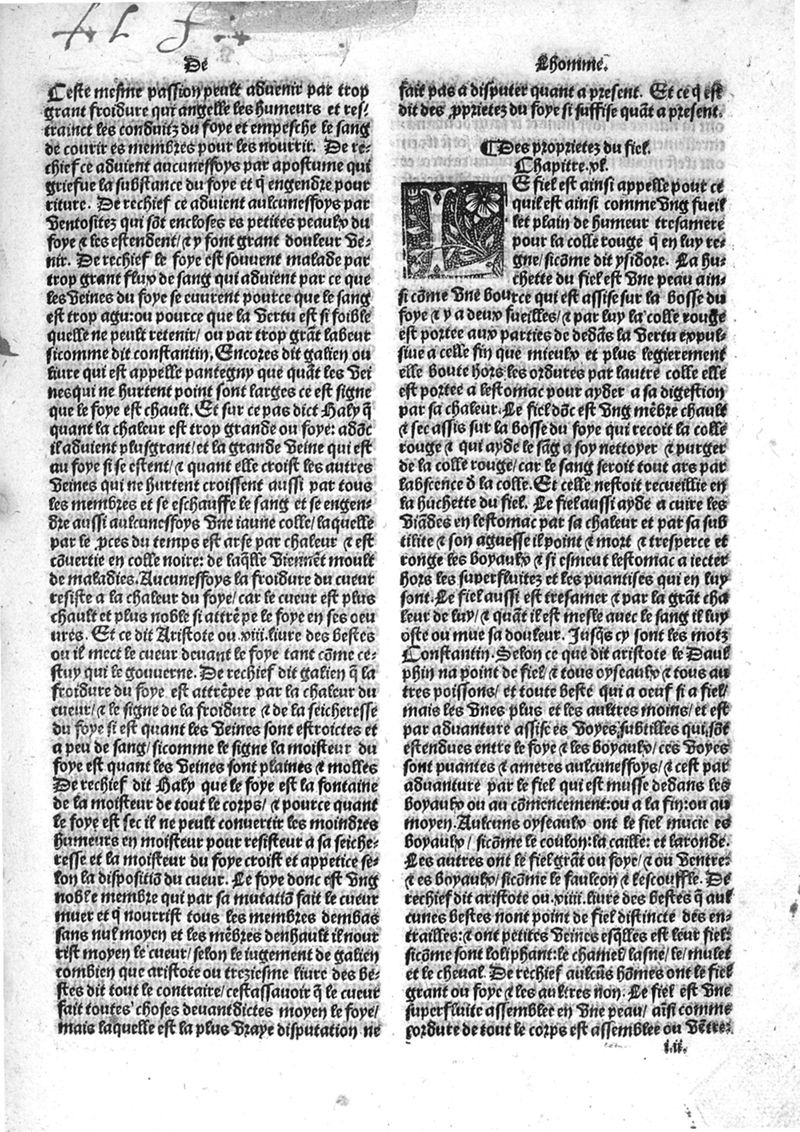 De
Lhomme.
Ceste mesme passion peult advenir par trop
grant froidure qui angelle les humeurs et res-
trainct les conduitz du foye et empesche le sang
de courir es membres pour les nourrir. De re-
chief ce advient aucunessoys par apostume qui
griefue la substance du foye et q̃ engendre pour
riture. De rechief ce advient aulcunessoys par
ventositez qui sõt encloses es petites peaulx du
foye ⁊ les estendent/⁊ y font grant douleur ve-
nir. De rechief le foye est souvent malade par
trop grant flux de sang qui advient par ce que
les veines du foye se euurent pource que le sang
est trop agu: ou pource que la vertu est si foible
quelle ne peult retenir/ ou par trop grãt labeur
sicomme dit constantin, Encores dit galien ou
livre qui est appelle pantegny que quãt les vei
nes qui ne hurtent point sont larges ce est signe
que le foye est chault. Et sur ce pas dict Haly q̃
quant la chaleur est trop grande ou foye: adõc
il advient plus grant/ et la grande veine qui est
au foye si se estent/ ⁊ quant elle croist les autres
veines qui ne hurtent croissent aussi par tous
les membres et se eschauffe le sang et se engen-
dre aussi aulcunessoys vne iaune colle/ laquelle
par le ꝓces du temps est arse par chaleur ⁊ est
cõuertie en colle noire: de laq̃lle viennẽt moult
de maladies. Aucunessoys la froidure du cueur
resiste a la chaleur du foye/ car le cueur est plus
chault et plus noble si attrẽpe le foye en ses oeu
ures. Et ce dit Aristote ou .viii. liure des bestes
ou il mect le cueur deuant le foye tant cõme ce-
stuy qui le gouuerne. De rechief dit galien q̃ la
froidure du foye est attrẽpee par la chaleur du
cueur/ ⁊ le signe de la froidure ⁊ de la seicheresse
du foye si est quant les veines sont estroictes et
a peu de sang/ sicomme le signe la moisteur du
foye est quant les veines sont plaines ⁊ molles
De rechief dit Haly que le foye est la fontaine
de la moisteur de tout le corps/ ⁊ pource quant
le foye est sec il ne peult convertir les moindres
humeurs en moisteur pour resister a sa seiche-
resse et la moisteur du foye croist et appetice se-
lon la dispositiõ du cueur. Le foye donc est vng
noble membre qui par sa mutatiõ fait le cueur
muer et q̃ nourrist tous les membres dembas
sans nul moyen et les mẽbres denhault il nour
rist moyen le cueur/ selon le iugement de galien
combien que aristote ou treziesme liure des be-
stes dit tout le contraire/ cestassauoir q̃ le cueur
fait toutes choses deuantdictes moyen le foye/
mais laquelle est la plus vraye disputation ne
fait pas a disputer quant a present. Et ce q̃ est
dit des ꝓprietez du foye si suffise quãt a present.
⸿ Des proprietez du fiel.
Chapitre .xl.
LE fiel est ainsi appelle pour ce
quil est ainsi comme vng fueil
let plain de humeur tresamere
pour la colle rouge q̃ en luy re-
gne/ sicõme dit ysidore. La hu-
chette du fiel est vne peau ain-
si cõme vne bource qui est assise sur la bosse du
foye ⁊ y a deux fueilles/ ⁊ par luy la colle rouge
est portee aux parties de dedãs la vertu expul-
siue a celle fin que mieulx et plus legierement
elle boute hors les ordures par lautre colle elle
est portee a lestomac pour ayder a sa digestion
par sa chaleur. Le fiel dõc est vng mẽbre chault
⁊ sec assis sur la bosse du foye qui recoit la colle
rouge ⁊ qui ayde le sãg a soy nettoyer ⁊ purger
de la colle rouge/ car le sang seroit tout ars par
labscence d̃ la colle. Et celle nestoit recueillie en
la huchette du fiel. Le fiel aussi ayde a cuire les
viãdes en lestomac par sa chaleur et par sa sub
tilite ⁊ son aguesse il point ⁊ mort ⁊ tresperce et
ronge les boyaulx ⁊ si esmeut lestomac a iecter
hors les superfluitez et les puantises qui en luy
sont. Le fiel aussi est tresamer ⁊ par la grãt cha
leur de luy/ ⁊ quãt il est mesle avec le sang il luy
oste ou mue sa douleur. Jusq̃s cy sont les motz
Constantin. Selon ce que dit aristote le Daul
phin na point de fiel/ ⁊ tous oyseaulx ⁊ tous au
tres poissons/ et toute beste qui a oeuf si a fiel/
mais les vnes plus et les aultres moins/ et est
par aduanture assis es voyes subtilles qui sõt
estendues entre le foye ⁊ les boyaulx/ ces voyes
sont puantes ⁊ ameres aulcunessoys/ ⁊ cest par
aduanture par le fiel qui est musse dedans les
boyaulx ou au cõmencement: ou a la fin: ou au
moyen. Aulcuns oyseaulx ont le fiel mucie es
boyaulx/ sicõme le coulon: la caille: et laronde.
Les autres ont le fiel grãt ou foye/ ⁊ ou ventre
⁊ es boyaulx/ sicõme le faulcon ⁊ lescouffle. De
rechief dit aristote ou .viiii. liure des bestes q̃ aul
cunes bestes nont point de fiel distincte des en-
trailles: ⁊ ont petites veines esq̃lles est leur fiel:
sicõme sont loliphant: le chamel/ lasne/ le/ mulet
et le cheval. De rechief aulcũs hõmes ont le fiel
grant ou foye ⁊ les aultres non. Le fiel est vne
superfluite assemblee en vne peau/ aisi comme
lordure de tout le corps est assemblee ou vẽtre:
l.ii.